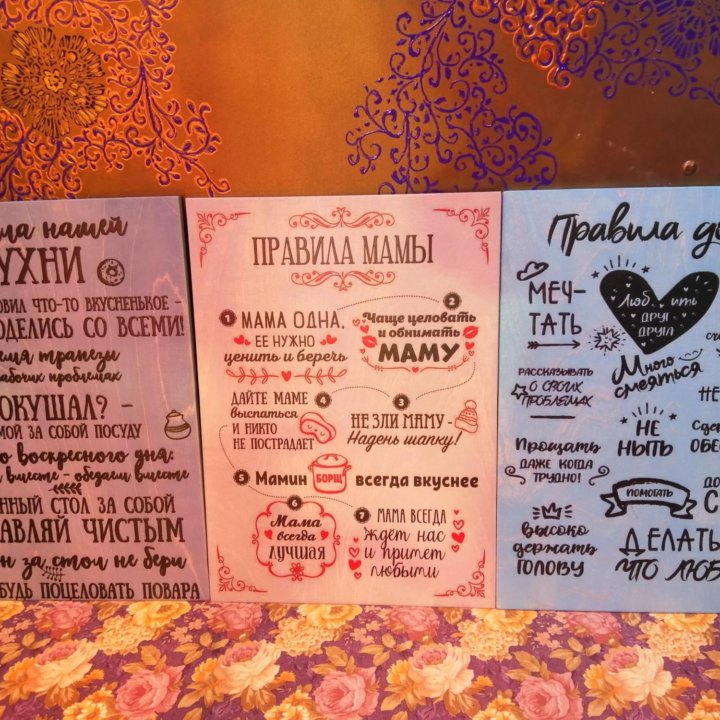 ла нашей
УХНИ
овил что-то вкусненькое -
оделись со всеми!
емя трапезы
рабочих проблемах
окушал? -
мой за собой посуду
о воскресного дня:
вместе - обедаем вместе
нный стол за собой
авляй чистым
н за стол не бери
будь поцеловать повара
ПРАВИЛА МАМЫ
1 МАМА ОДНА,
ЕЕ НУЖНО
ценить и беречь
2
Чаще целовать
и обнимать
МАМУ
3
НЕ ЗЛИ МАМУ -
Надень шапку!
ДАЙТЕ МАМЕ 4
выспаться
И НИКТО
НЕ ПОСТРАДАЕТ
5 Мамин БОРЩ всегда вкуснее
6
Мама
всегда
лучшая
7 МАМА ВСЕГДА
ждёт нас
и примет
любыми
Правила до
МЕЧ-
ТАТЬ
Люб ить
ДРУГ
ДРУГА
РАССКАЗЫВАТЬ
О СВОИХ
ПРОБЛЕМАХ
Много
смеяться
НЕ
Прощать
ДАЖЕ КОГДА
ТРУДНО!
НЕ
НЫТЬ
Сде
ОБЕ
ПОМОГАТЬ
ДО
С
Высоко
держать
ГОЛОВУ
ДЕЛАТЬ
ЧТО ЛЮБ